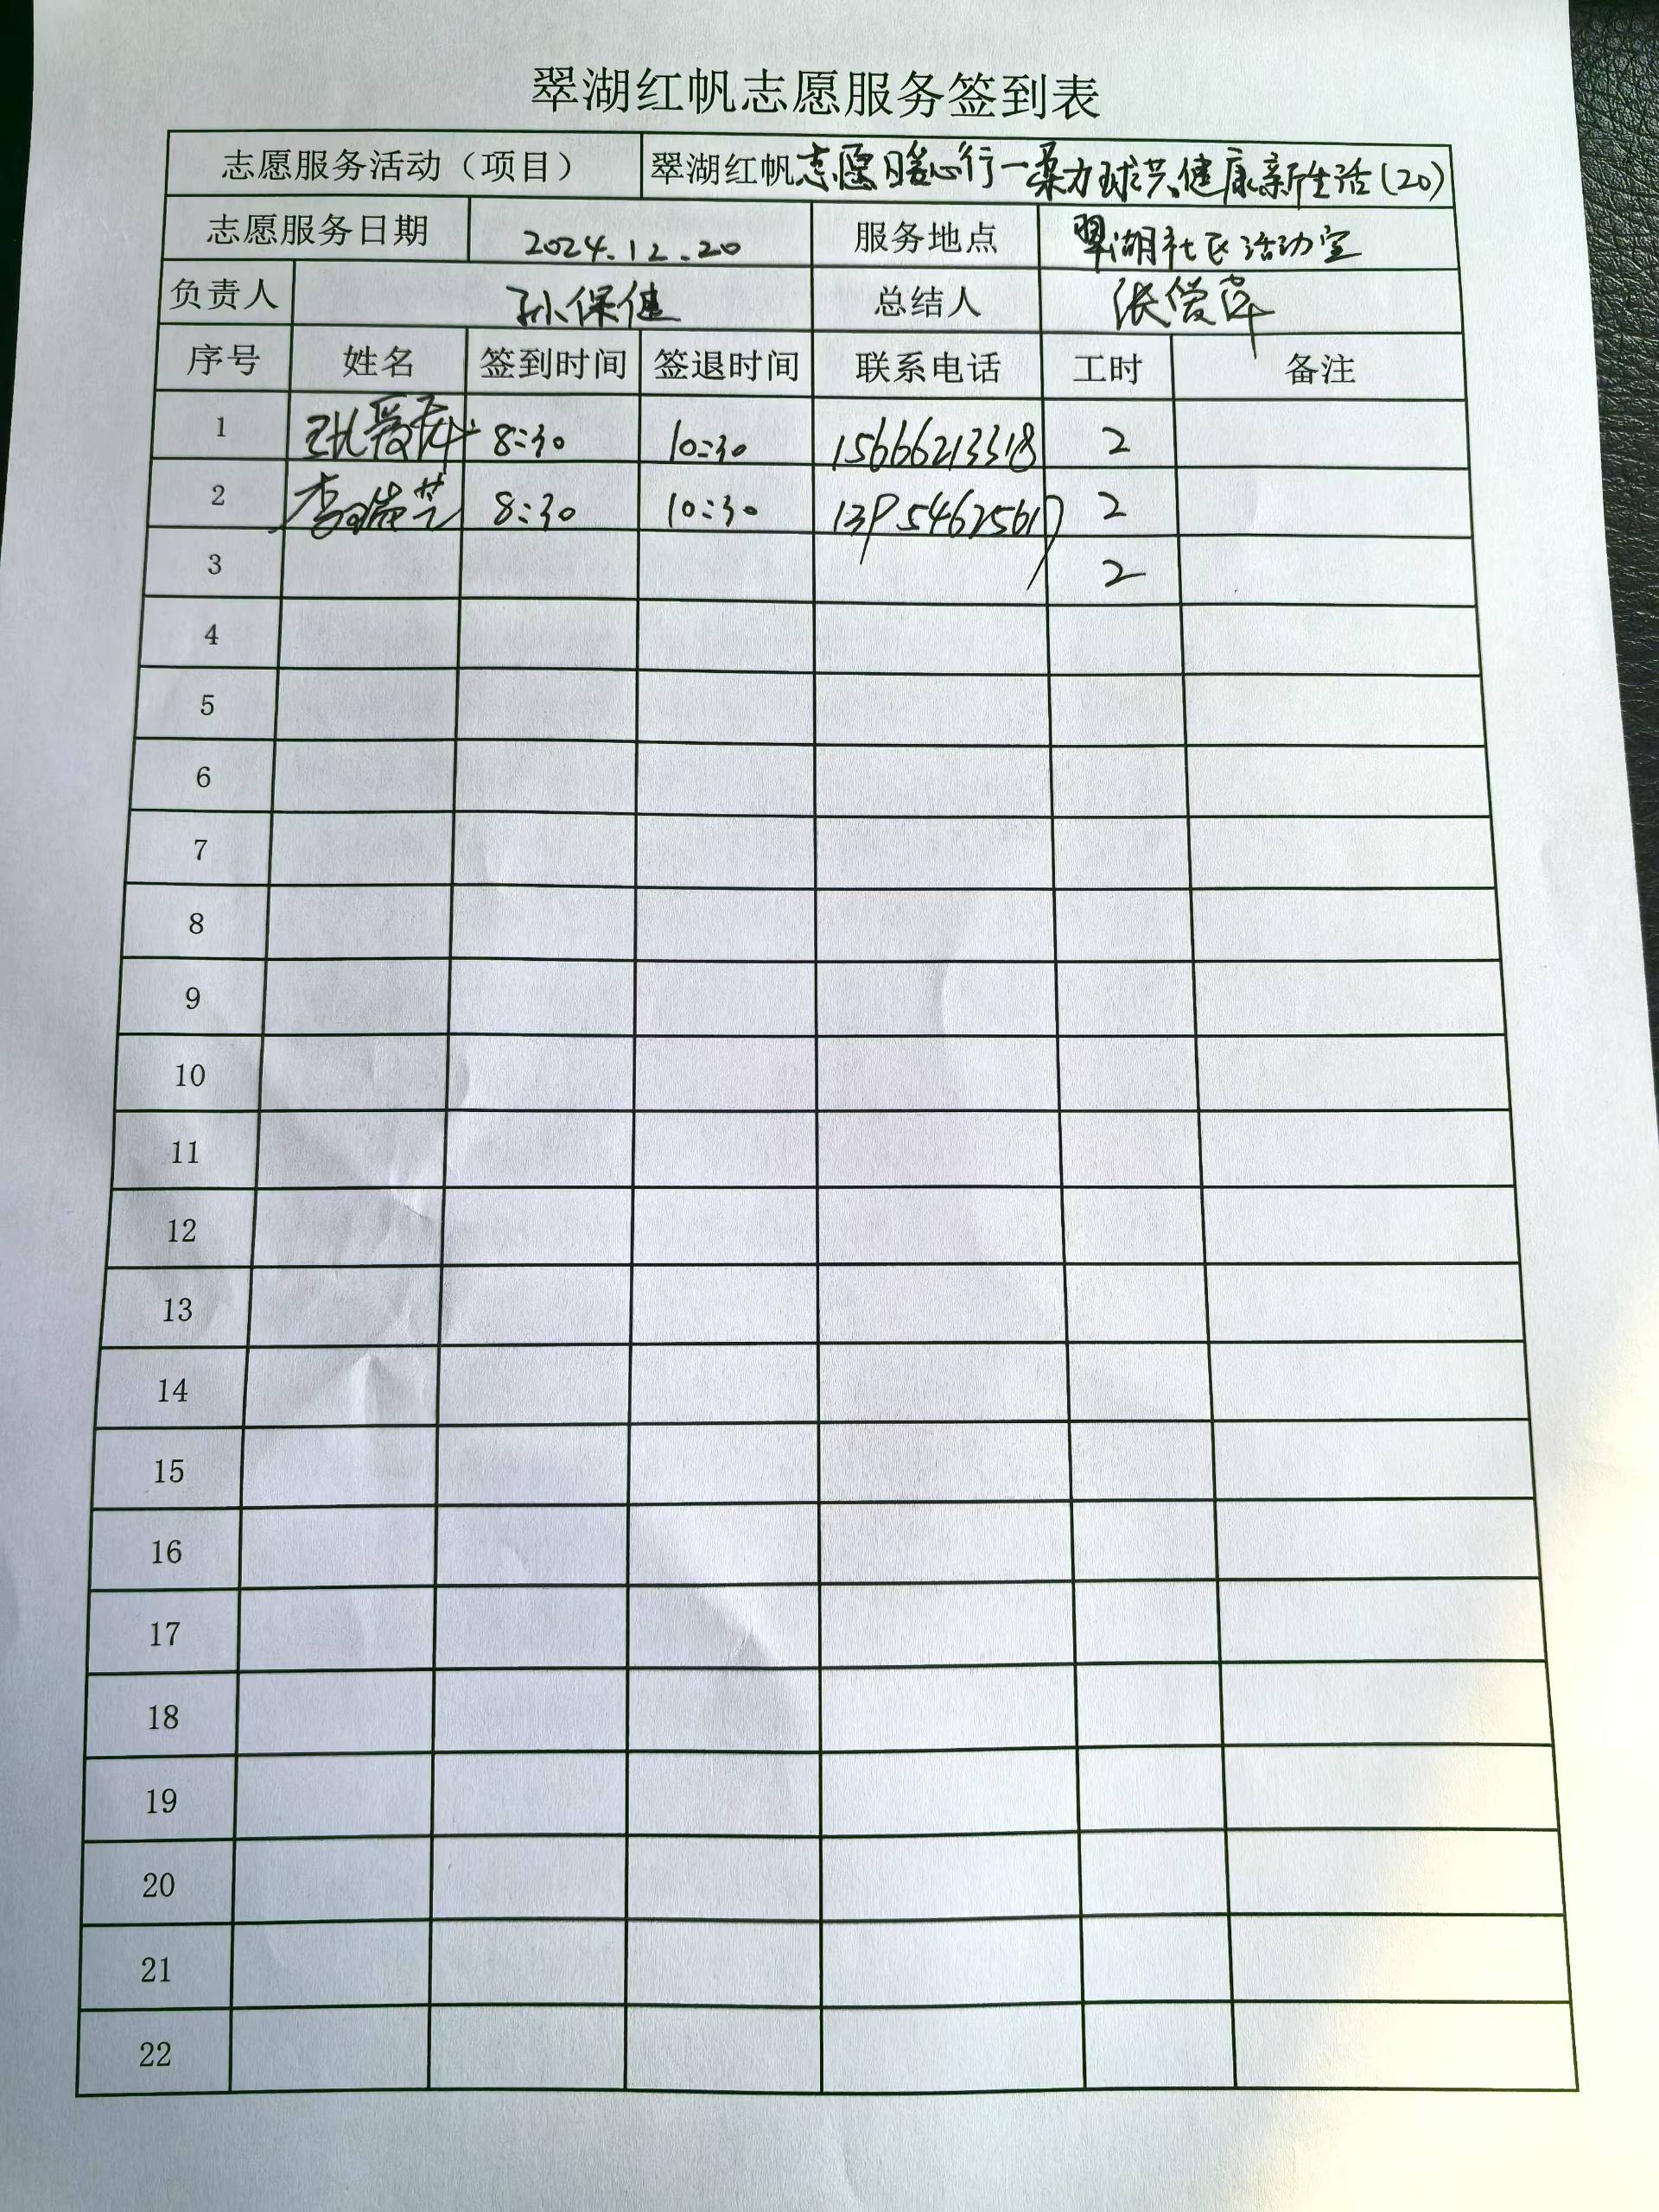 翠湖红帆志愿服务签到表
志愿服务活动（项目） 翠湖红帆志愿暖心行一柔力球共健康新生活(20)
志愿服务日期 2024.12.20 服务地点 翠湖社区活动室
负责人 孙保健 总结人
序号 姓名 签到时间 签退时间 联系电话 工时 备注
1 8:30 10:30 15666213318 2
2 李瑞芝 8:30 10:30 2
3 2
4
5
6
7
8
9
10
11
12
13
14
15
16
17
18
19
20
21
22